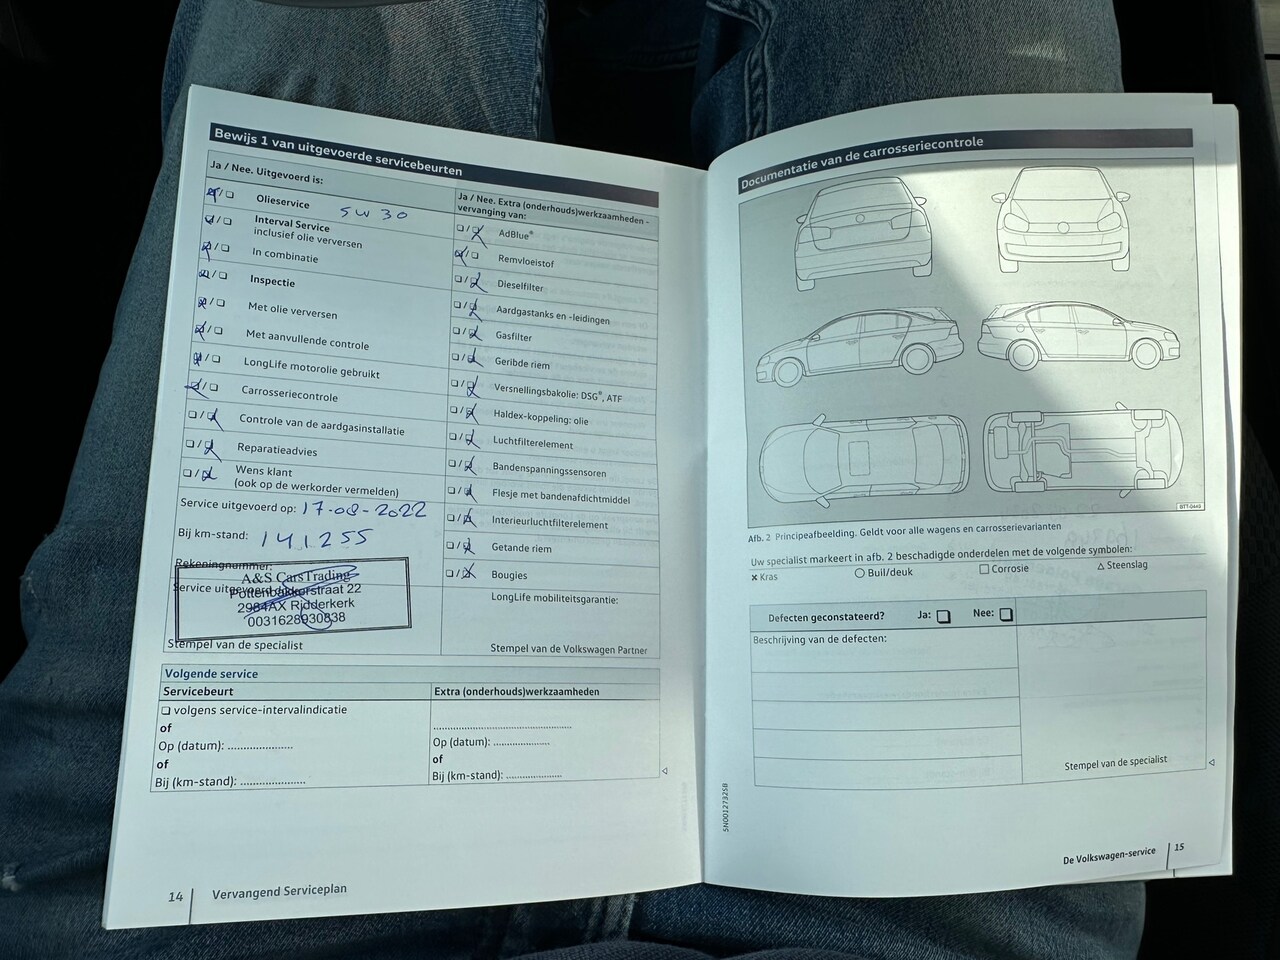 Bewijs 1 van uitgevoerde servicebeurten
Ja / Nee. Uitgevoerd is:
Olieservice 5W30
Interval Service
inclusief olie verversen
In combinatie
Inspectie
Met olie verversen
Met aanvullende controle
LongLife motorolie gebruikt
Carrosseriecontrole
Controle van de aardgasinstallatie
Reparatieadvies
Wens klant
(ook op de werkorder vermelden)
Service uitgevoerd op: 17-08-2022
Bij km-stand: 141255
Rekeningnummer:
Service uitgevoerd
A&S CarsTrading
Pottenbakkerstraat 22
2984AX Ridderkerk
0031628930838
Stempel van de specialist
Ja / Nee. Extra (onderhouds)werkzaamheden -
vervanging van:
AdBlue®
Remvloeistof
Dieselfilter
Aardgastanks en -leidingen
Gasfilter
Geribde riem
Versnellingsbakolie: DSG®, ATF
Haldex-koppeling: olie
Luchtfilterelement
Bandenspanningssensoren
Flesje met bandenafdichtmiddel
Interieurluchtfilterelement
Getande riem
Bougies
LongLife mobiliteitsgarantie:
Stempel van de Volkswagen Partner
Volgende service
Servicebeurt
volgens service-intervalindicatie
of
Op (datum): ......................
of
Bij (km-stand): ......................
Extra (onderhouds)werkzaamheden
..............................................
Op (datum): ...................
of
Bij (km-stand): ...................
14 Vervangend Serviceplan
Documentatie van de carrosseriecontrole
BTT-0449
Afb. 2 Principeafbeelding. Geldt voor alle wagens en carrosserievarianten
Uw specialist markeert in afb. 2 beschadigde onderdelen met de volgende symbolen:
Kras Buil/deuk Corrosie Steenslag
Defecten geconstateerd? Ja: Nee:
Beschrijving van de defecten:
Stempel van de specialist
5N0012732SB
De Volkswagen-service 15